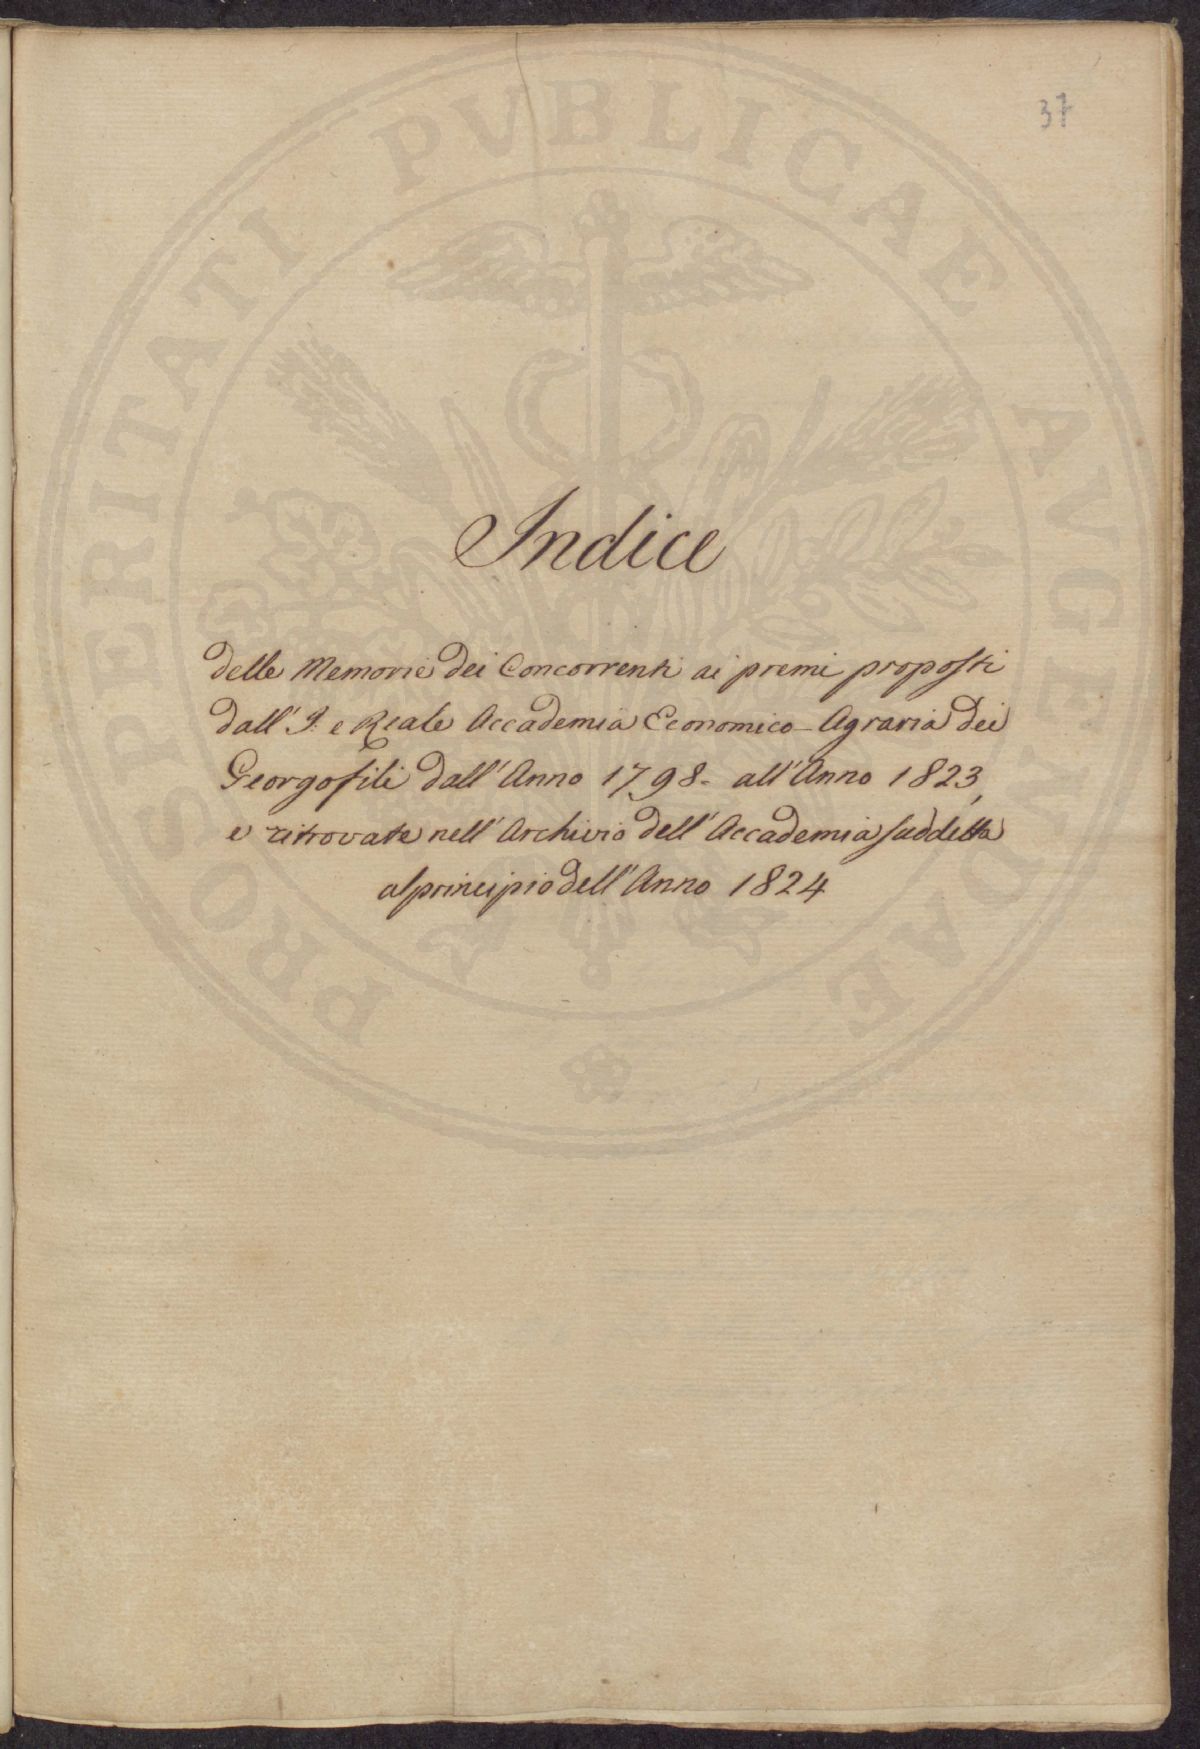 37
PROSPERITATI PVBLICAE AVGENDAE
Indice
delle Memorie dei Concorrenti ai premi proposti
dall' I. e Reale Accademia Economico-Agraria dei
Georgofili dall' Anno 1798. all' Anno 1823,
e ritrovate nell' Archivio dell' Accademia suddetta
al principio dell' Anno 1824